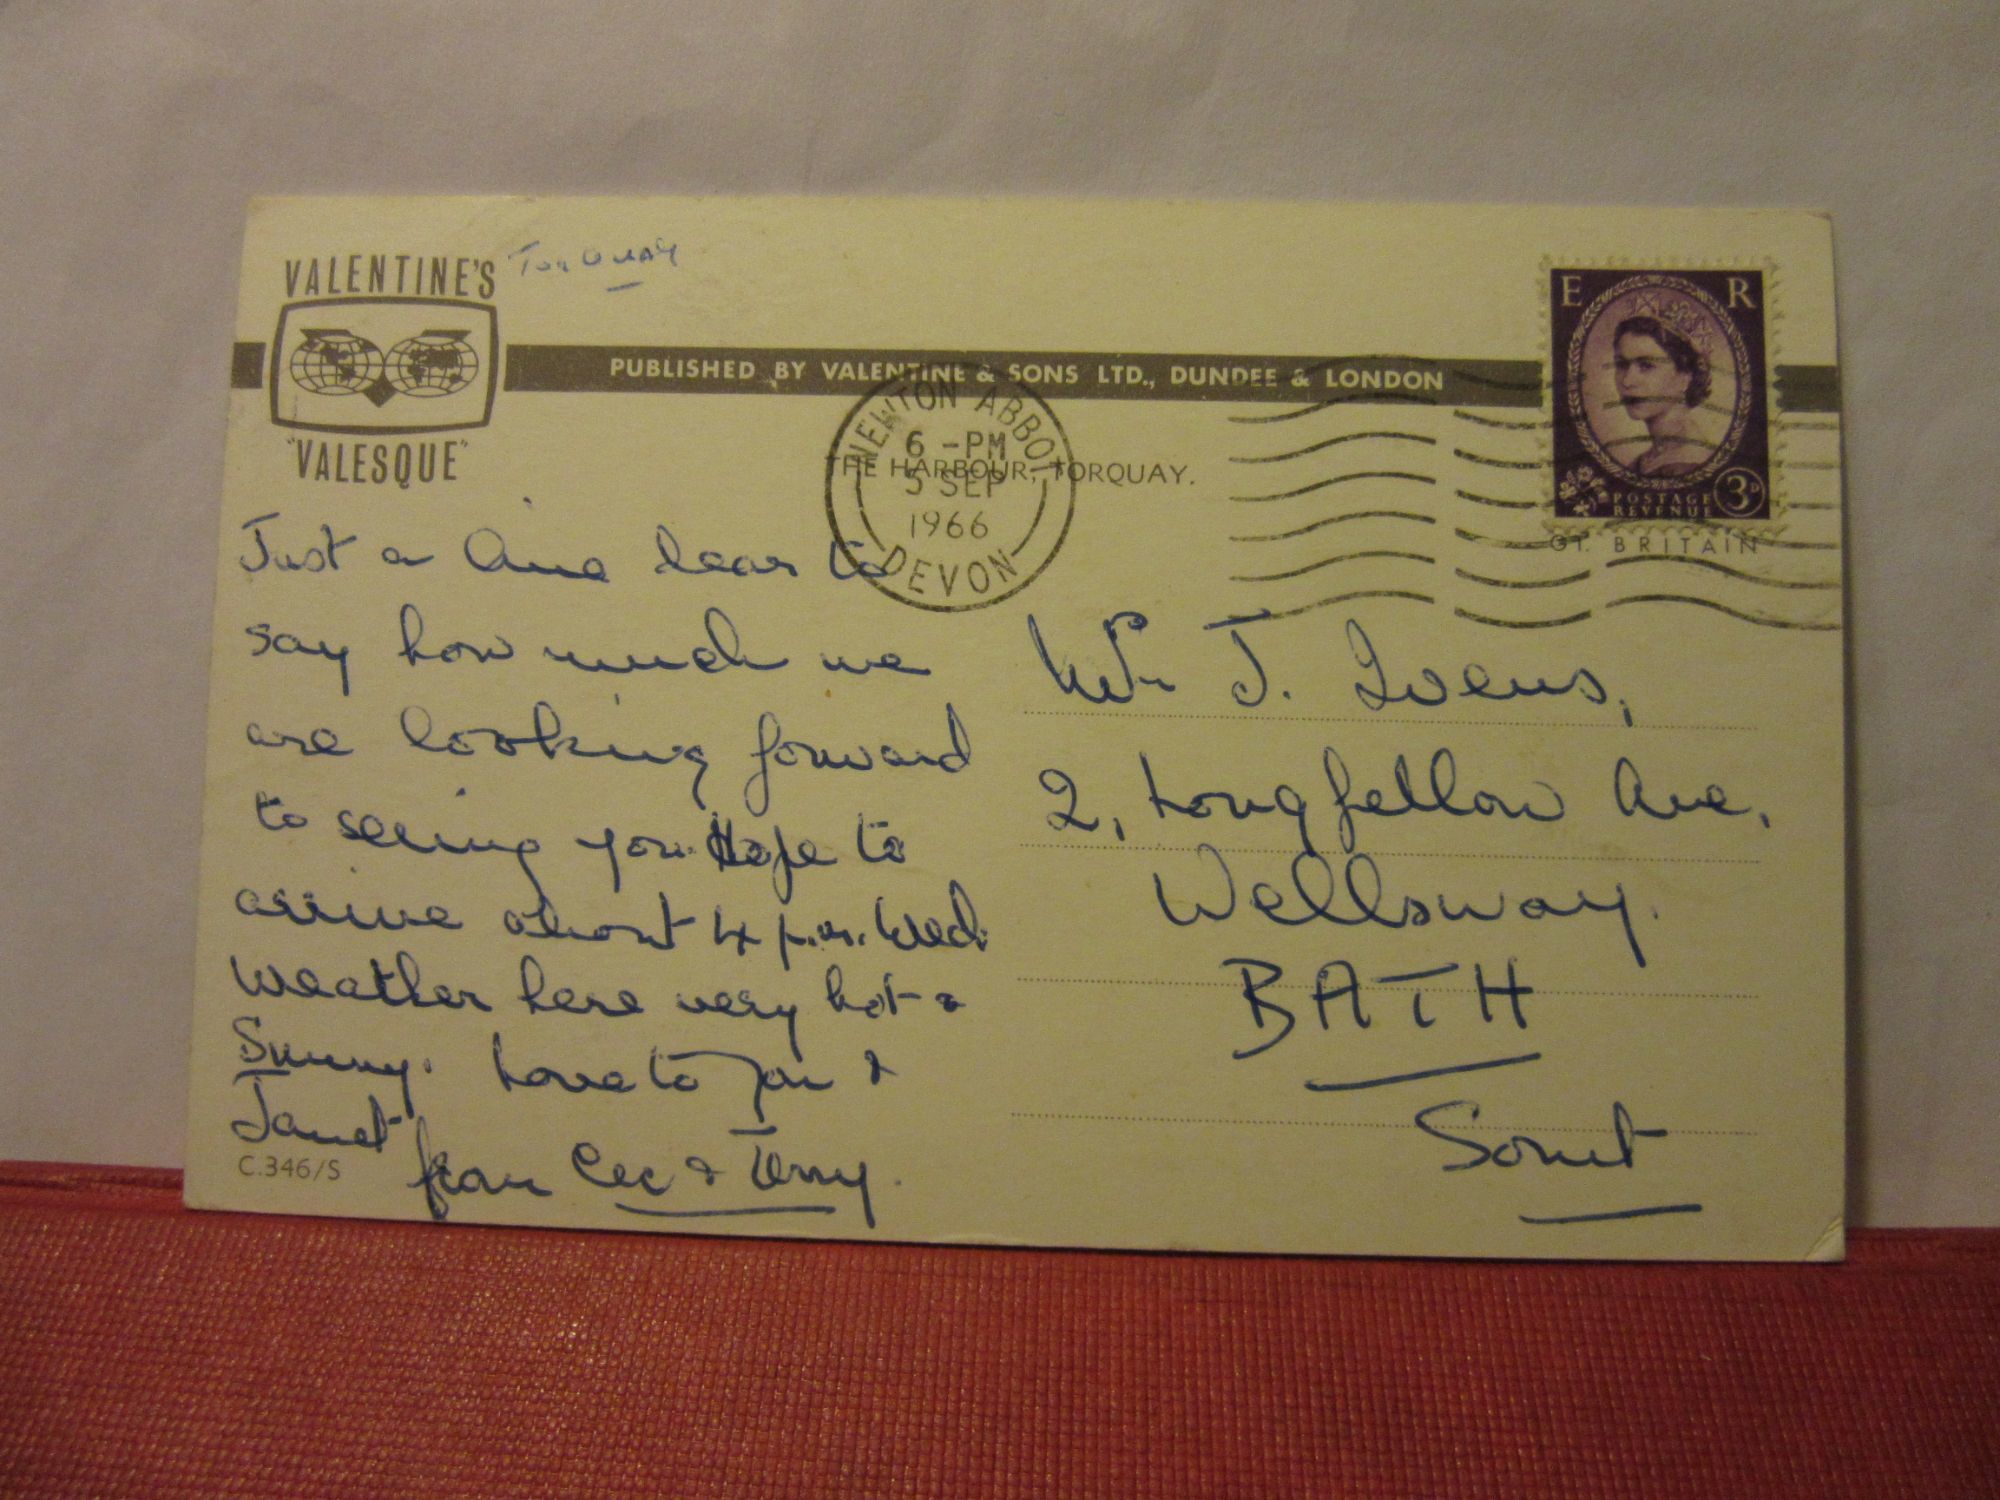 VALENTINE'S
Torquay
PUBLISHED BY VALENTINE & SONS LTD., DUNDEE & LONDON
"VALESQUE"
E R
POSTAGE
REVENUE
3D
NEWTON ABBOT
6 -PM
5 SEP
1966
DEVON
THE HARBOUR, TORQUAY.
GT. BRITAIN
Just a line dear to
say how much we
are looking forward
to seeing you. Hope to
arrive about 4 p.m. Wed.
Weather here very hot &
Sunny. Love to you &
Janet
from Cec & Terry.
C.346/S
J. Ivens,
2, Longfellow Ave,
Wellsway.
BATH
Somt